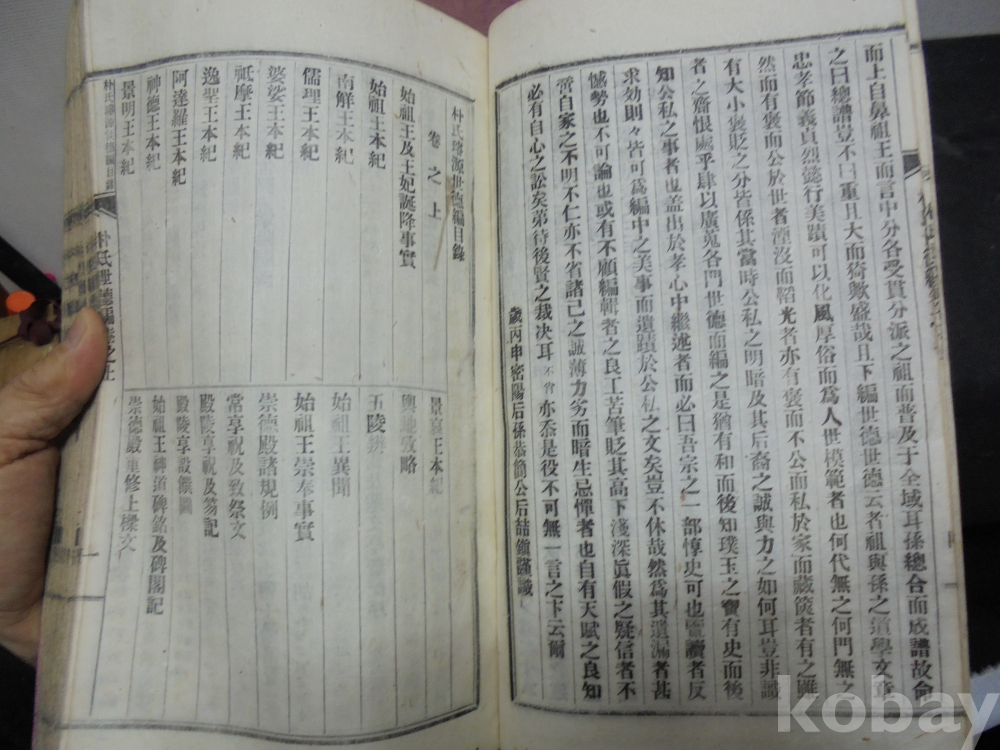 而上自鼻祖王而言中分各受貫分派之祖而普及于全域耳孫總合而成譜故俞
之曰總譜豈不曰重且大而猗歟盛哉且下編世德世德云者祖與孫之道學文章
忠孝節義貞烈懿行美蹟可以化風厚俗而爲人世模範者也何代無之何門無之
然而有褒而公於世者湮沒而韜光者亦有褒而不公而私於家而藏篋者有之
有大小褒貶之分皆係其當時公私之明暗及其后裔之誠與力之如何耳豈非識
者之齎恨處乎肆以廣蒐各門世德而編之是猶有和而後知璞玉之寶有史而後
知公私之事者也盖出於孝心中繼述者而必曰吾宗之一部惇史可也讀者反
求効則々皆可爲編中之美事而遺蹟於公私之文矣豈不休哉然爲其遺漏者甚
憾勢也不可論也或有不顧編輯者之良工苦筆貶其高下淺深眞假之疑信者不
啻自家之不明不仁亦不省諸己之誠薄力劣而暗生忌憚者也自有天賦之良知
必有自心之訟矣弟待後賢之裁决耳不肖亦忝是役不可無一言之下云爾
歲丙申密陽后孫恭簡公后喆鎭謹識
朴氏璿源世德編目錄
卷之上
始祖王及王妃誕降事實
始祖王本紀
南解王本紀
儒理王本紀
婆娑王本紀
祗摩王本紀
逸聖王本紀
阿達羅王本紀
神德王本紀
景明王本紀
景哀王本紀
輿地攷略
五陵辨
始祖王異聞
始祖王崇奉事實
崇德殿諸規例
常享祝及致祭文
殿陵享祝及笏記
殿陵享設饌圖
始祖王神道碑銘及碑閣記
崇德殿重修上樑文
朴氏世德編卷之上
kobay